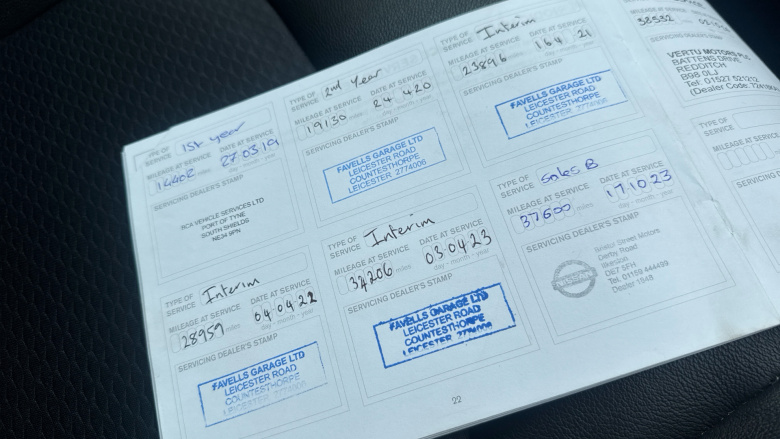 TYPE OF SERVICE 1st year
MILEAGE AT SERVICE DATE AT SERVICE
14402 miles 27 03 19
day - month - year
SERVICING DEALER'S STAMP
BCA VEHICLE SERVICES LTD
PORT OF TYNE
SOUTH SHIELDS
NE34 9PN
TYPE OF SERVICE 2nd Year
MILEAGE AT SERVICE DATE AT SERVICE
19130 miles 24 4 20
day - month - year
SERVICING DEALER'S STAMP
FAVELLS GARAGE LTD
LEICESTER ROAD
COUNTESTHORPE
LEICESTER 2774006
TYPE OF SERVICE Interim
MILEAGE AT SERVICE DATE AT SERVICE
23896 miles 16 4 21
day - month - year
SERVICING DEALER'S STAMP
FAVELLS GARAGE LTD
LEICESTER ROAD
COUNTESTHORPE
LEICESTER 2774006
38532
SERVICING
VERTU MOTORS PLC
BATTENS DRIVE
REDDITCH
B98 0LJ
Tel: 01527
(Dealer Code:
TYPE OF SERVICE Interim
MILEAGE AT SERVICE DATE AT SERVICE
28959 miles 04 04 22
day - month - year
SERVICING DEALER'S STAMP
FAVELLS GARAGE LTD
LEICESTER ROAD
COUNTESTHORPE
LEICESTER 2774006
TYPE OF SERVICE Interim
MILEAGE AT SERVICE DATE AT SERVICE
34206 miles 03 04 23
day - month - year
SERVICING DEALER'S STAMP
FAVELLS GARAGE LTD
LEICESTER ROAD
COUNTESTHORPE
LEICESTER 2774006
TYPE OF SERVICE Sales B
MILEAGE AT SERVICE DATE AT SERVICE
37600 miles 17 10 23
day - month - year
SERVICING DEALER'S STAMP
NISSAN
Street Motors
Derby Road
DE7 5FH
Tel. 01159 444499
Dealer 1948
TYPE OF SERVICE
MILEAGE AT SERVICE
SERVICING
22